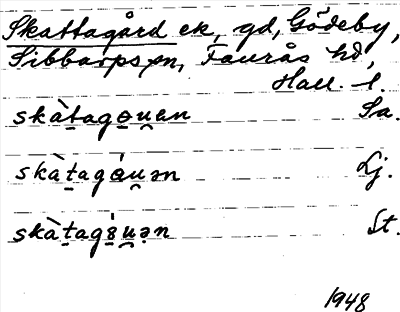 Skattagård ek, gd, Gödeby,
Sibbarps sn, Faurås hd,
Hall. l.
skàtagou̯en Sa.
skàtagóu̯ən Lj.
skàtag8́u̯ən St.
1948